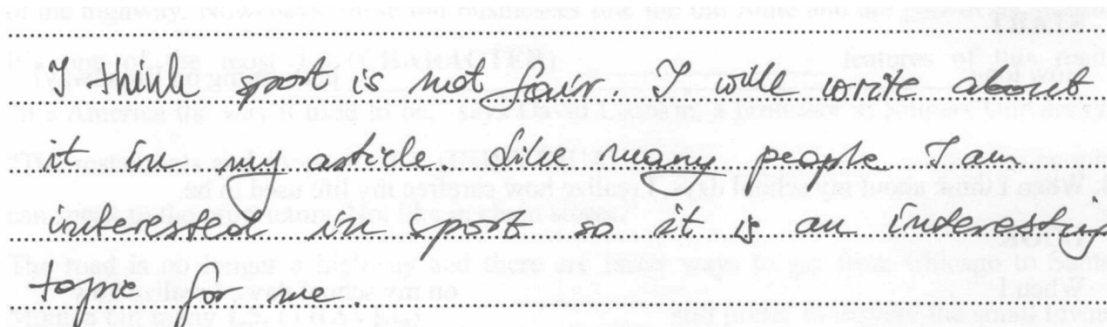 I think sport is not fair I will write about
it in my article. Like many people I am
interested in sport so it is an interesting
topic for me